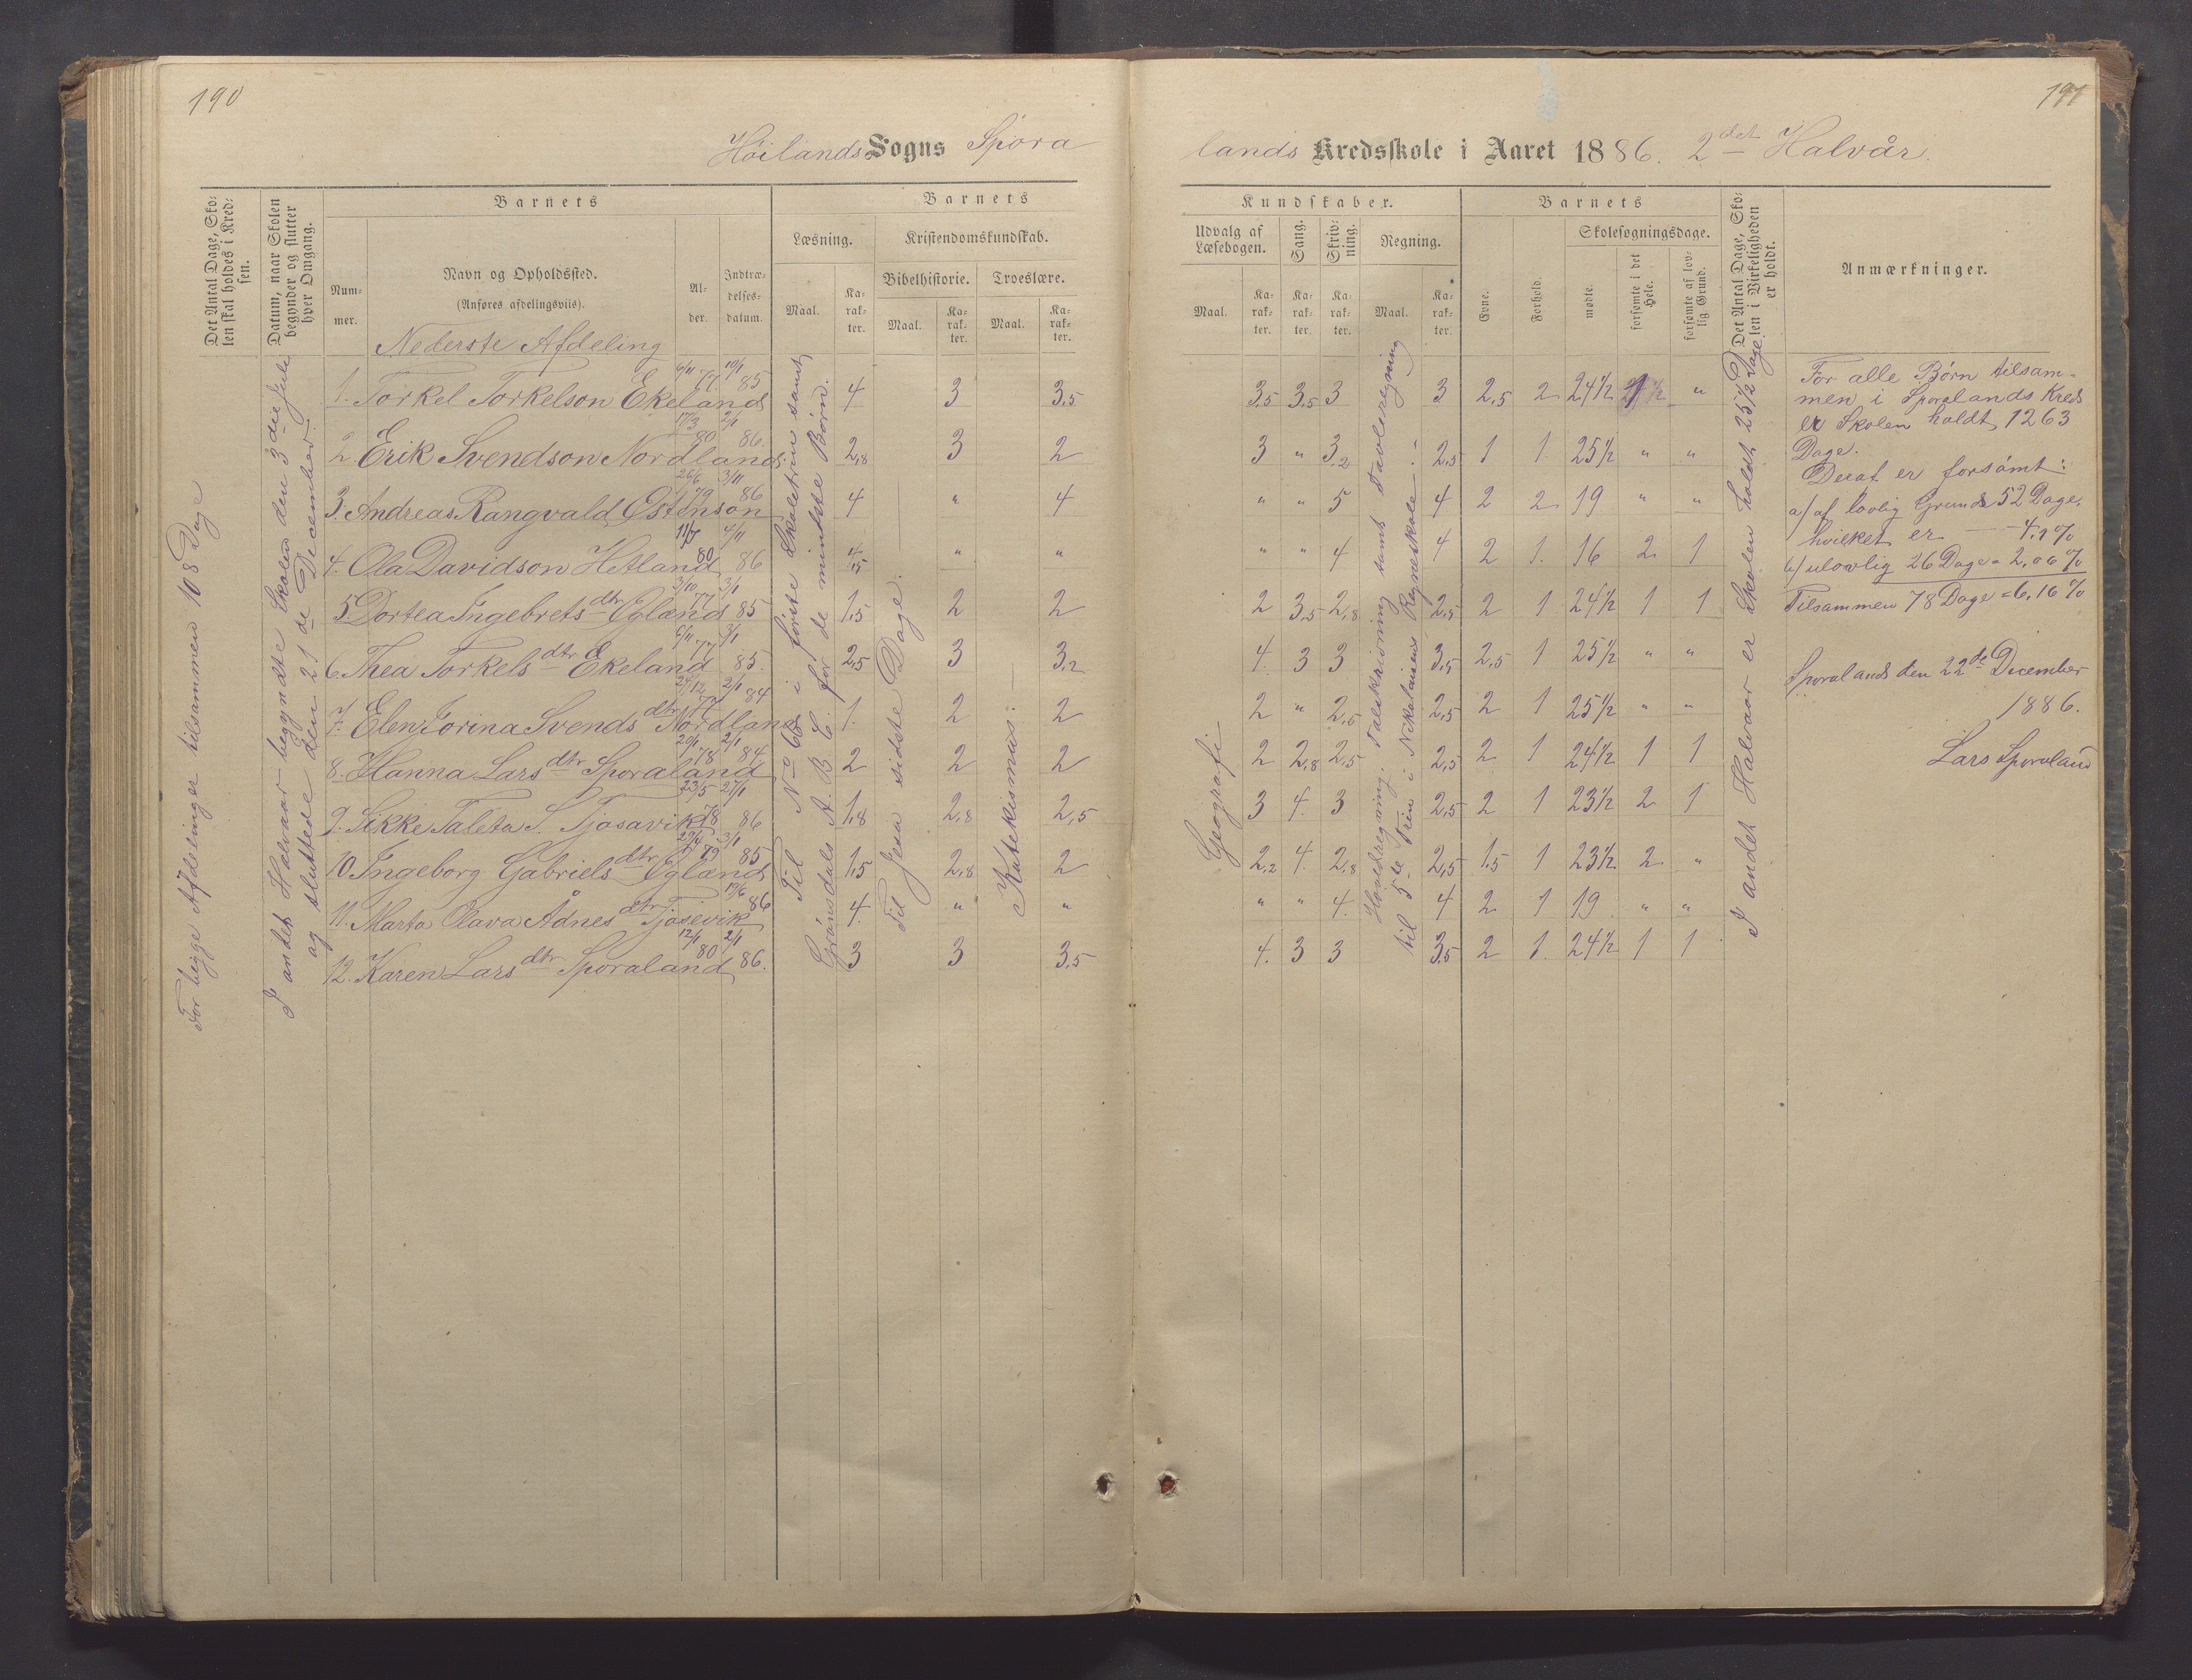 190
191
Höilands Sogns Spora
lands Kredsskole i Aaret 1886. 2det Halvår.
Det Antal Dage, Sko-
len skal holdes i Kred-
sen.
Datum, naar Skolen
begynder og slutter
hver Omgang.
Barnets
Num-
mer.
Navn og Opholdssted.
(Anføres afdelingsviis).
Al-
der.
Indtræ-
delses-
datum.
Barnets
Læsning.
Kristendomskundskab.
Maal.
Ka-
rak-
ter.
Bibelhistorie.
Troeslære.
Maal.
Ka-
rak-
ter.
Maal.
Ka-
rak-
ter.
Kundskaber.
Udvalg af
Læsebogen.
Sang.
Skriv-
ning.
Regning.
Maal.
Ka-
rak-
ter.
Ka-
rak-
ter.
Ka-
rak-
ter.
Maal.
Ka-
rak-
ter.
Barnets
Evne.
Forhold.
Skolesøgningsdage.
mødte.
forsømte i det
Hele.
forsømte af lov-
lig Grund.
Det Antal Dage, Sko-
len i Virkeligheden
er holdt.
Anmærkninger.
For begge Afdelinger tilsammen 108 Dage
I andet Halvaar begyndte Skolen den 3die Juli
og sluttede den 21de December.
Nederste Afdeling
1. Torkel Torkelson Ekeland 6/11 77 10/1 85 4 3 3,5 3,5 3,5 3 3 2,5 2 24½ "
2. Erik Svendson Nordland 17/3 80 2/1 86. 2,8 3 2 3 " 3,2 2,5 1 1. 25½ " "
3. Andreas Rangvald Östenson 26/6 79 3/11 86 4 " 4 " " 5 4 2 2 19 " "
4. Ola Davidson Hetland 80 4/11 86 " " " " 4 4 2 1. 16 2 1
5. Dortea Ingebretsdtr Egland 3/10 77 3/1 85 1,5 2 2 2 3,5 2,8 2,5 2 1 24½ 1 1
6. Thea Torkelsdtr Ekeland 6/11 77 3/1 85. 2,5 3 3,2 4. 3 3 3,5 2,5 1 25½ " "
7. Elen Jorina Svendsdtr Nordland 77 2/1 84 1. 2 2 2 " 2,5 2,5 2 1 25½ " "
8. Hanna Larsdtr Sporaland 20/1 78 2/1 84 2 2 2 2 2,8 2,5 2,5 2 1 24½ 1 1
9. Sikke Taleta S. Tjosavik 23/5 78 27/1 86 1,8 2,8 2,5 3 4. 3 2,5 2 1 23½ 2 1
10. Ingeborg Gabrielsdtr Egland 79 3/1 85 1,5 2,8 2 2,2 4. 2,8 2,5 1,5 1 23½ 2 "
11. Marta Olava Ådnesdtr Tjosevik 19/6 86 4. " " " " 4. 4 2 1 19 " "
12. Karen Larsdtr Sporaland 12/1 80 2/1 86. 3 3 3,5 4. 3 3 3,5 2 1. 24½ 1 1
Til No 68 i første Skoletrin samt
Gröndals A. B. C. for de mindste Börn.
Til Jesu sidste Dage.
Katekismus.
Geografi
Hovedregning. Talskrivning samt Tavleregning
til 5te Trin i Nikolaisens Regneskole.
I andet Halvaar er Skolen holdt 25½ Dage.
For alle Børn tilsam-
men i Sporalands Kreds
er Skolen holdt 1263
Dage.
Deraf er forsömt:
a/ af lovlig Grund 52 Dage,
hvilket er — 4,1 %
b/ ulovlig 26 Dage = 2,06 %
Tilsammen 78 Dage = 6,16 %
Sporaland den 22de December
1886.
Lars Sporaland